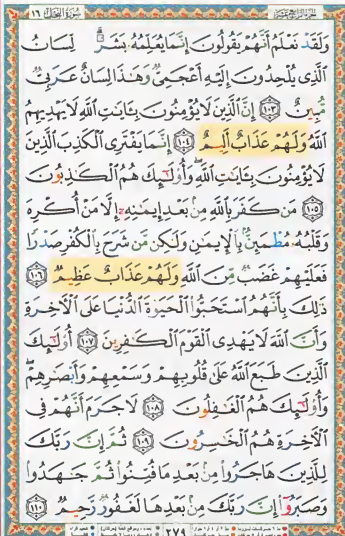 سورة النحل ١٦ الجزء الرابع عشر
وَلَقَدْ نَعْلَمُ أَنَّهُمْ يَقُولُونَ إِنَّمَا يُعَلِّمُهُۥ بَشَرٌ ۗ لِّسَانُ
ٱلَّذِى يُلْحِدُونَ إِلَيْهِ أَعْجَمِىٌّ وَهَـٰذَا لِسَانٌ عَرَبِىٌّ
مُّبِينٌ ١٠٣ إِنَّ ٱلَّذِينَ لَا يُؤْمِنُونَ بِـَٔايَـٰتِ ٱللَّهِ لَا يَهْدِيهِمُ
ٱللَّهُ وَلَهُمْ عَذَابٌ أَلِيمٌ ١٠٤ إِنَّمَا يَفْتَرِى ٱلْكَذِبَ ٱلَّذِينَ
لَا يُؤْمِنُونَ بِـَٔايَـٰتِ ٱللَّهِ ۖ وَأُو۟لَـٰٓئِكَ هُمُ ٱلْكَـٰذِبُونَ
١٠٥ مَن كَفَرَ بِٱللَّهِ مِنۢ بَعْدِ إِيمَـٰنِهِۦٓ إِلَّا مَنْ أُكْرِهَ
وَقَلْبُهُۥ مُطْمَئِنٌّۢ بِٱلْإِيمَـٰنِ وَلَـٰكِن مَّن شَرَحَ بِٱلْكُفْرِ صَدْرًا
فَعَلَيْهِمْ غَضَبٌ مِّنَ ٱللَّهِ وَلَهُمْ عَذَابٌ عَظِيمٌ ١٠٦
ذَٰلِكَ بِأَنَّهُمُ ٱسْتَحَبُّوا۟ ٱلْحَيَوٰةَ ٱلدُّنْيَا عَلَى ٱلْـَٔاخِرَةِ
وَأَنَّ ٱللَّهَ لَا يَهْدِى ٱلْقَوْمَ ٱلْكَـٰفِرِينَ ١٠٧ أُو۟لَـٰٓئِكَ
ٱلَّذِينَ طَبَعَ ٱللَّهُ عَلَىٰ قُلُوبِهِمْ وَسَمْعِهِمْ وَأَبْصَـٰرِهِمْ ۖ
وَأُو۟لَـٰٓئِكَ هُمُ ٱلْغَـٰفِلُونَ ١٠٨ لَا جَرَمَ أَنَّهُمْ فِى
ٱلْـَٔاخِرَةِ هُمُ ٱلْخَـٰسِرُونَ ١٠٩ ثُمَّ إِنَّ رَبَّكَ
لِلَّذِينَ هَاجَرُوا۟ مِنۢ بَعْدِ مَا فُتِنُوا۟ ثُمَّ جَـٰهَدُوا۟
وَصَبَرُوٓا۟ إِنَّ رَبَّكَ مِنۢ بَعْدِهَا لَغَفُورٌ رَّحِيمٌ ١١٠
٢٧٩